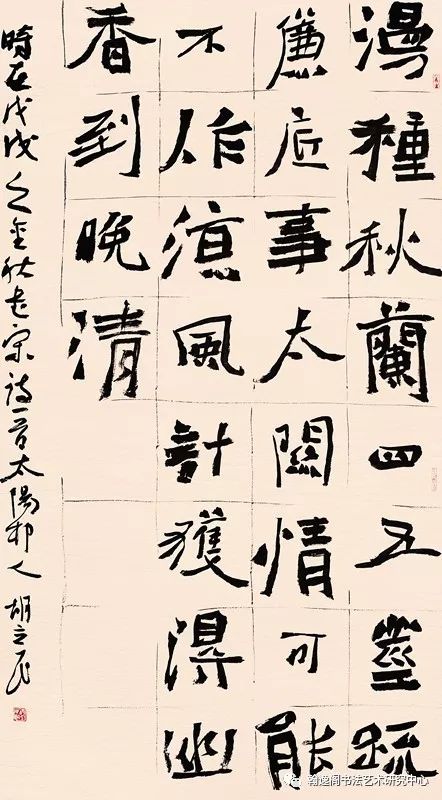 漫種秋蘭四五莖疏
廉底事太關情可能
不作涼風計獲得幽
香到晚清
時在戊戌之金秋书宋詩一首太陽邨人 胡立民
翰逸阁书法艺术研究中心